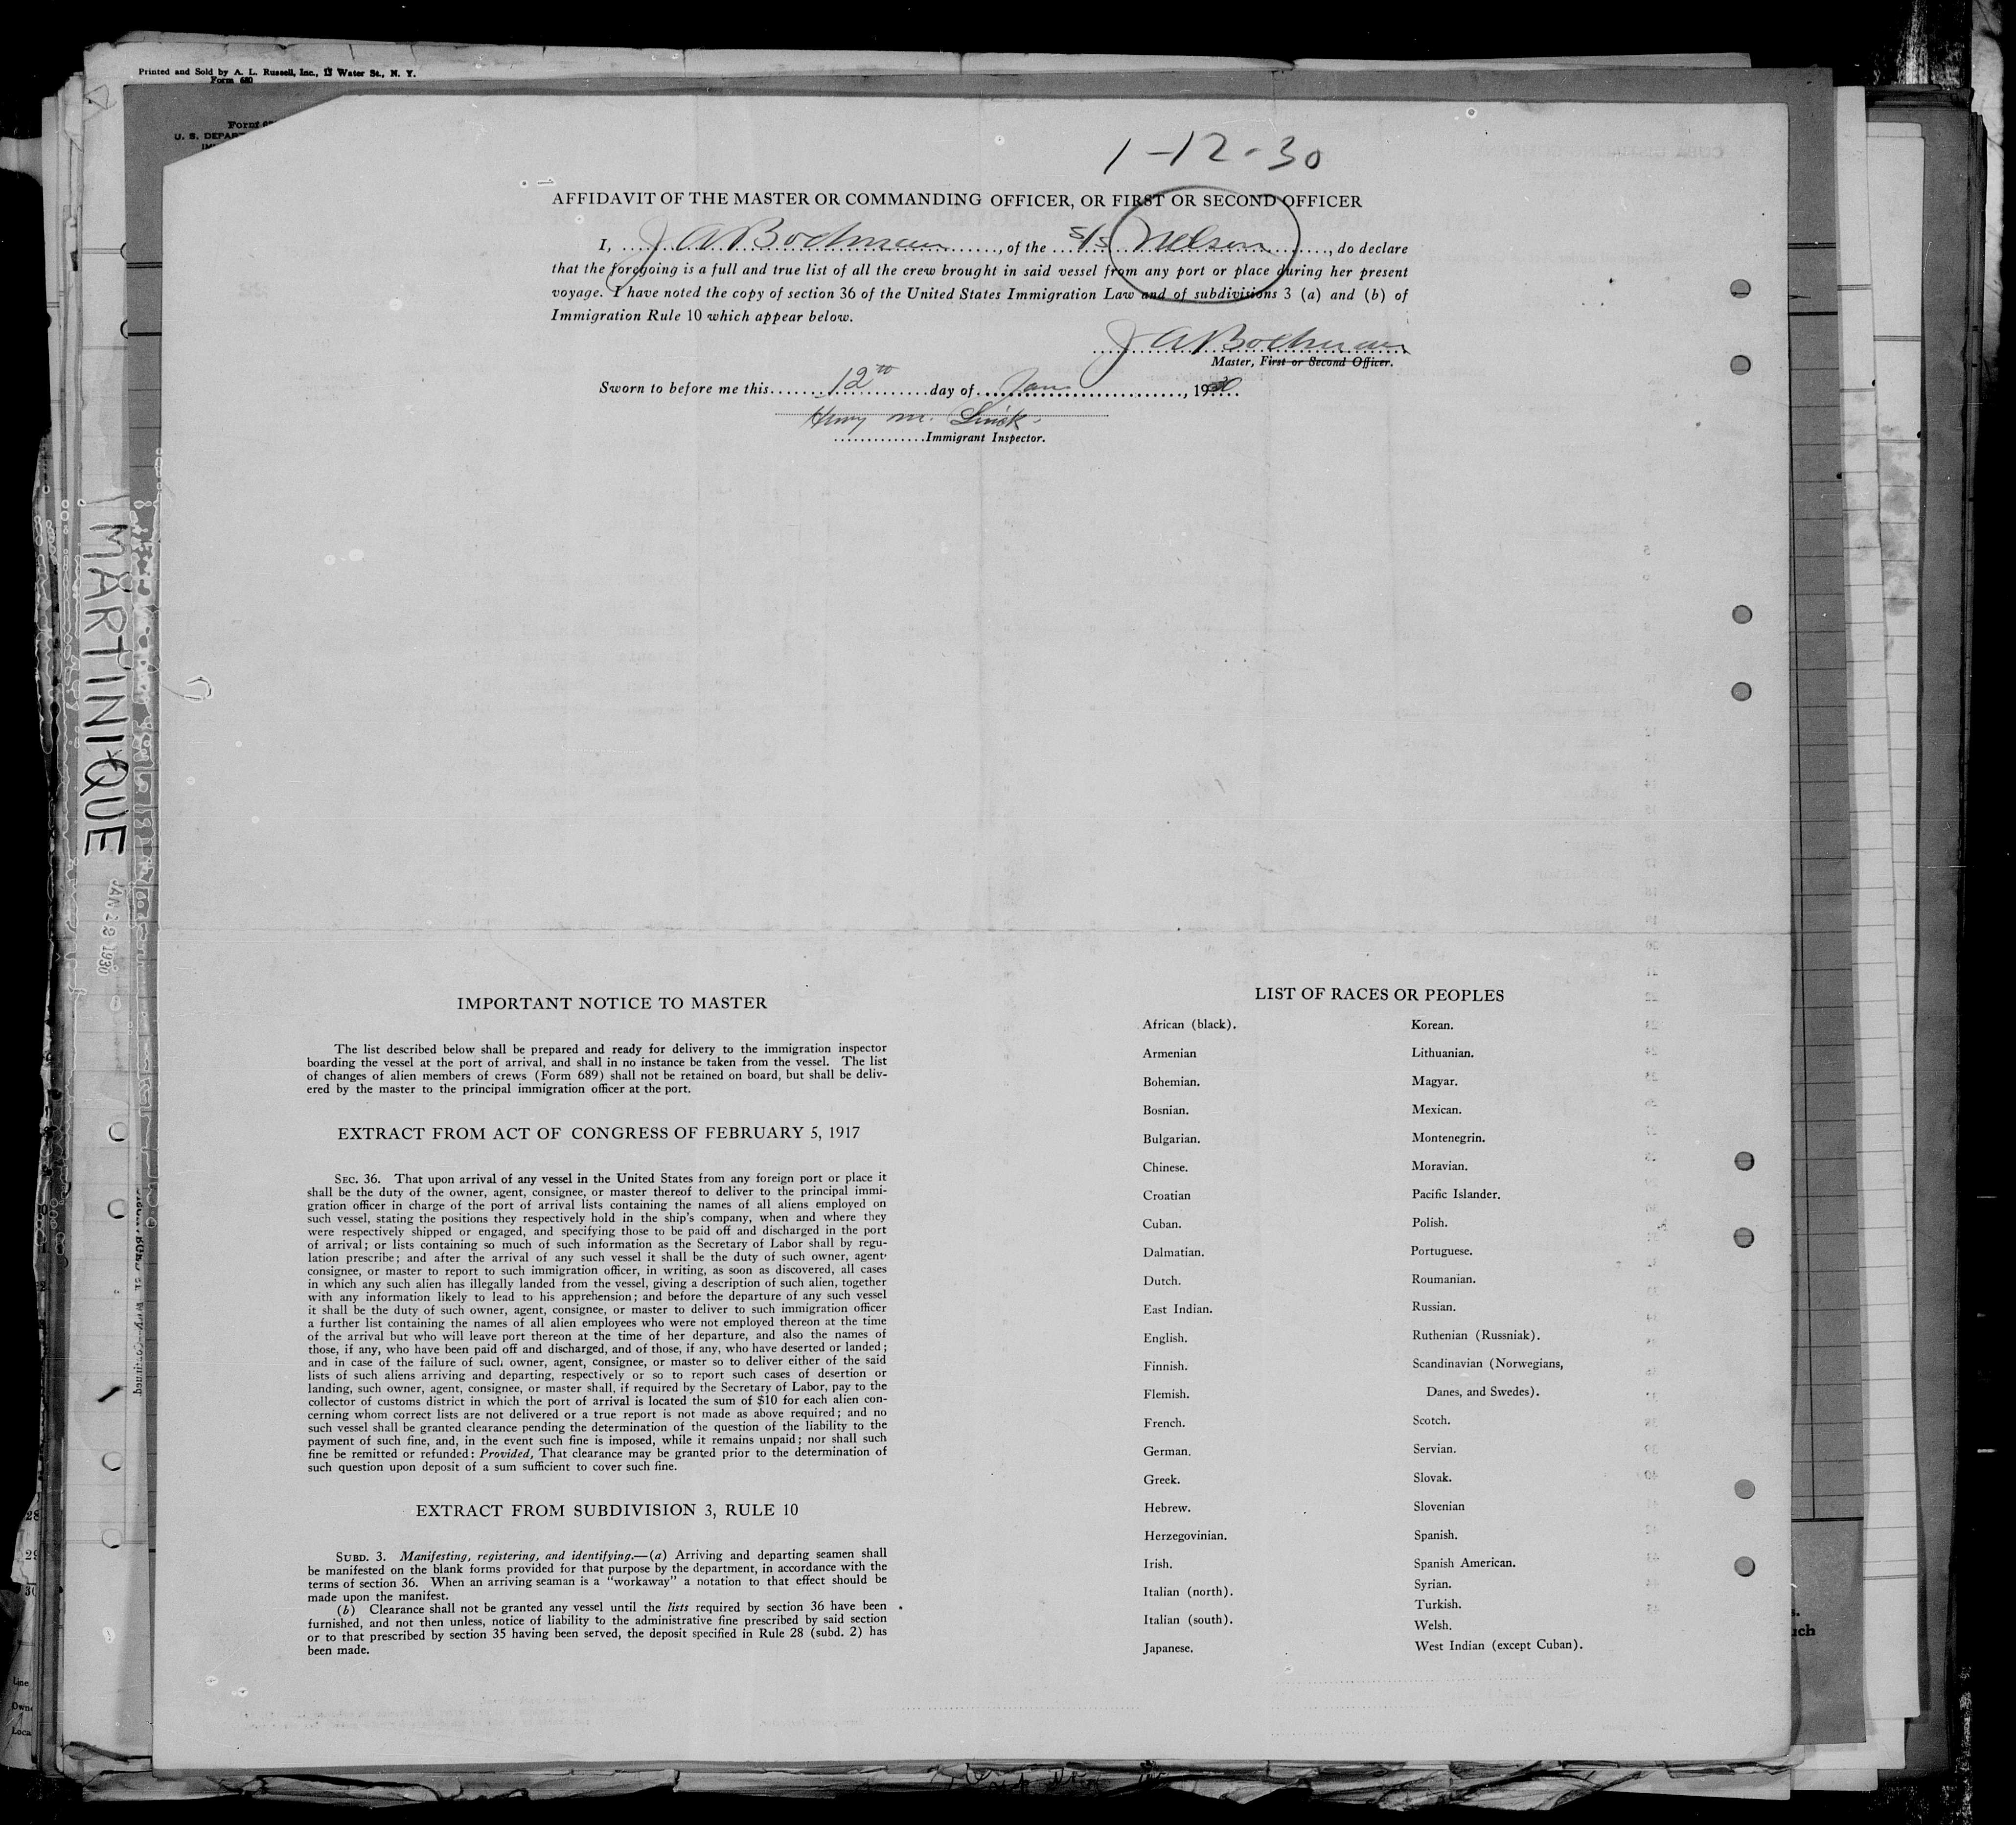 Printed and Sold by A. L. Russell, Inc., 13 Water St., N. Y.
Form 680
U. S. DEPAR
1-12-30
AFFIDAVIT OF THE MASTER OR COMMANDING OFFICER, OR FIRST OR SECOND OFFICER
I, J A Bochmann, of the S/S Nelson, do declare
that the foregoing is a full and true list of all the crew brought in said vessel from any port or place during her present
voyage. I have noted the copy of section 36 of the United States Immigration Law and of subdivisions 3 (a) and (b) of
Immigration Rule 10 which appear below.
J A Bochmann
Master, First or Second Officer.
Sworn to before me this 12th day of Jan, 1930
Henry M.
Immigrant Inspector.
MARTINIQUE
JAN 22 1930
IMPORTANT NOTICE TO MASTER
The list described below shall be prepared and ready for delivery to the immigration inspector
boarding the vessel at the port of arrival, and shall in no instance be taken from the vessel. The list
of changes of alien members of crews (Form 689) shall not be retained on board, but shall be deliv-
ered by the master to the principal immigration officer at the port.
EXTRACT FROM ACT OF CONGRESS OF FEBRUARY 5, 1917
SEC. 36. That upon arrival of any vessel in the United States from any foreign port or place it
shall be the duty of the owner, agent, consignee, or master thereof to deliver to the principal immi-
gration officer in charge of the port of arrival lists containing the names of all aliens employed on
such vessel, stating the positions they respectively hold in the ship's company, when and where they
were respectively shipped or engaged, and specifying those to be paid off and discharged in the port
of arrival; or lists containing so much of such information as the Secretary of Labor shall by regu-
lation prescribe; and after the arrival of any such vessel it shall be the duty of such owner, agent,
consignee, or master to report to such immigration officer, in writing, as soon as discovered, all cases
in which any such alien has illegally landed from the vessel, giving a description of such alien, together
with any information likely to lead to his apprehension; and before the departure of any such vessel
it shall be the duty of such owner, agent, consignee, or master to deliver to such immigration officer
a further list containing the names of all alien employees who were not employed thereon at the time
of the arrival but who will leave port thereon at the time of her departure, and also the names of
those, if any, who have been paid off and discharged, and of those, if any, who have deserted or landed;
and in case of the failure of such owner, agent, consignee, or master so to deliver either of the said
lists of such aliens arriving and departing, respectively or so to report such cases of desertion or
landing, such owner, agent, consignee, or master shall, if required by the Secretary of Labor, pay to the
collector of customs district in which the port of arrival is located the sum of $10 for each alien con-
cerning whom correct lists are not delivered or a true report is not made as above required; and no
such vessel shall be granted clearance pending the determination of the question of the liability to the
payment of such fine, and, in the event such fine is imposed, while it remains unpaid; nor shall such
fine be remitted or refunded: Provided, That clearance may be granted prior to the determination of
such question upon deposit of a sum sufficient to cover such fine.
EXTRACT FROM SUBDIVISION 3, RULE 10
SUBD. 3. Manifesting, registering, and identifying.—(a) Arriving and departing seamen shall
be manifested on the blank forms provided for that purpose by the department, in accordance with the
terms of section 36. When an arriving seaman is a "workaway" a notation to that effect should be
made upon the manifest.
(b) Clearance shall not be granted any vessel until the lists required by section 36 have been
furnished, and not then unless, notice of liability to the administrative fine prescribed by said section
or to that prescribed by section 35 having been served, the deposit specified in Rule 28 (subd. 2) has
been made.
LIST OF RACES OR PEOPLES
African (black).
Armenian
Bohemian.
Bosnian.
Bulgarian.
Chinese.
Croatian
Cuban.
Dalmatian.
Dutch.
East Indian.
English.
Finnish.
Flemish.
French.
German.
Greek.
Hebrew.
Herzegovinian.
Irish.
Italian (north).
Italian (south).
Japanese.
Korean.
Lithuanian.
Magyar.
Mexican.
Montenegrin.
Moravian.
Pacific Islander.
Polish.
Portuguese.
Roumanian.
Russian.
Ruthenian (Russniak).
Scandinavian (Norwegians,
Danes, and Swedes).
Scotch.
Servian.
Slovak.
Slovenian
Spanish.
Spanish American.
Syrian.
Turkish.
Welsh.
West Indian (except Cuban).